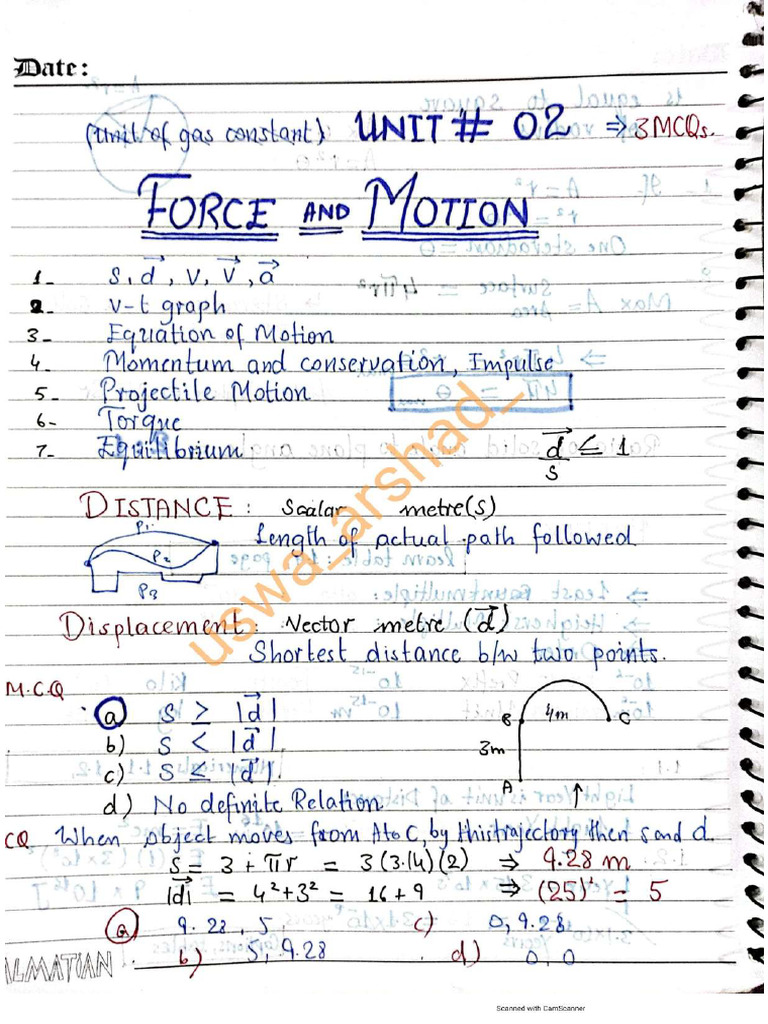 Date:
(unit of gas constant) UNIT # 02 ⇒ 3 MCQs.
FORCE AND MOTION
1- s, d⃗, v, v⃗, a⃗
2- v-t graph
3- Equation of Motion
4- Momentum and conservation, Impulse
5- Projectile Motion
6- Torque
7- Equilibrium d⃗/s ≤ 1
DISTANCE: Scalar metre(s)
Length of actual path followed
P1
P2
P3
Displacement: Vector metre (d⃗)
Shortest distance b/w two points.
M.C.Q
a) s ≥ |d⃗|
b) s < |d⃗|
c) s ≤ |d⃗|
d) No definite Relation
B 4m C
3m
A
CQ When object moves from A to C, by this trajectory then s and d.
s = 3 + πr = 3(3.14)(2) ⇒ 9.28 m
|d⃗| = 4²+3² = 16+9 ⇒ (25)² = 5
a) 9.28, 5 c) 0, 9.28
b) 5, 9.28 d) 0, 0
ILMATIAN
uswa_arshad_
Scanned with CamScanner